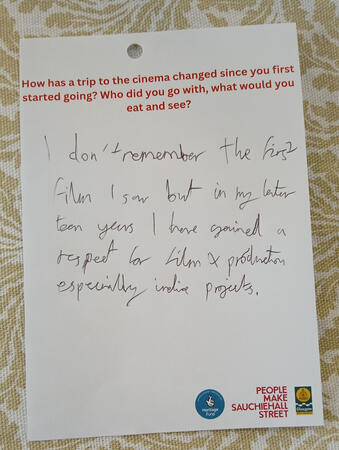 How has a trip to the cinema changed since you first
started going? Who did you go with, what would you
eat and see?
I don't remember the first
film I saw but in my later
teen years I have gained a
respect for film & production
especially indie projects.
Heritage
Fund
PEOPLE
MAKE
SAUCHIEHALL
STREET
Glasgow